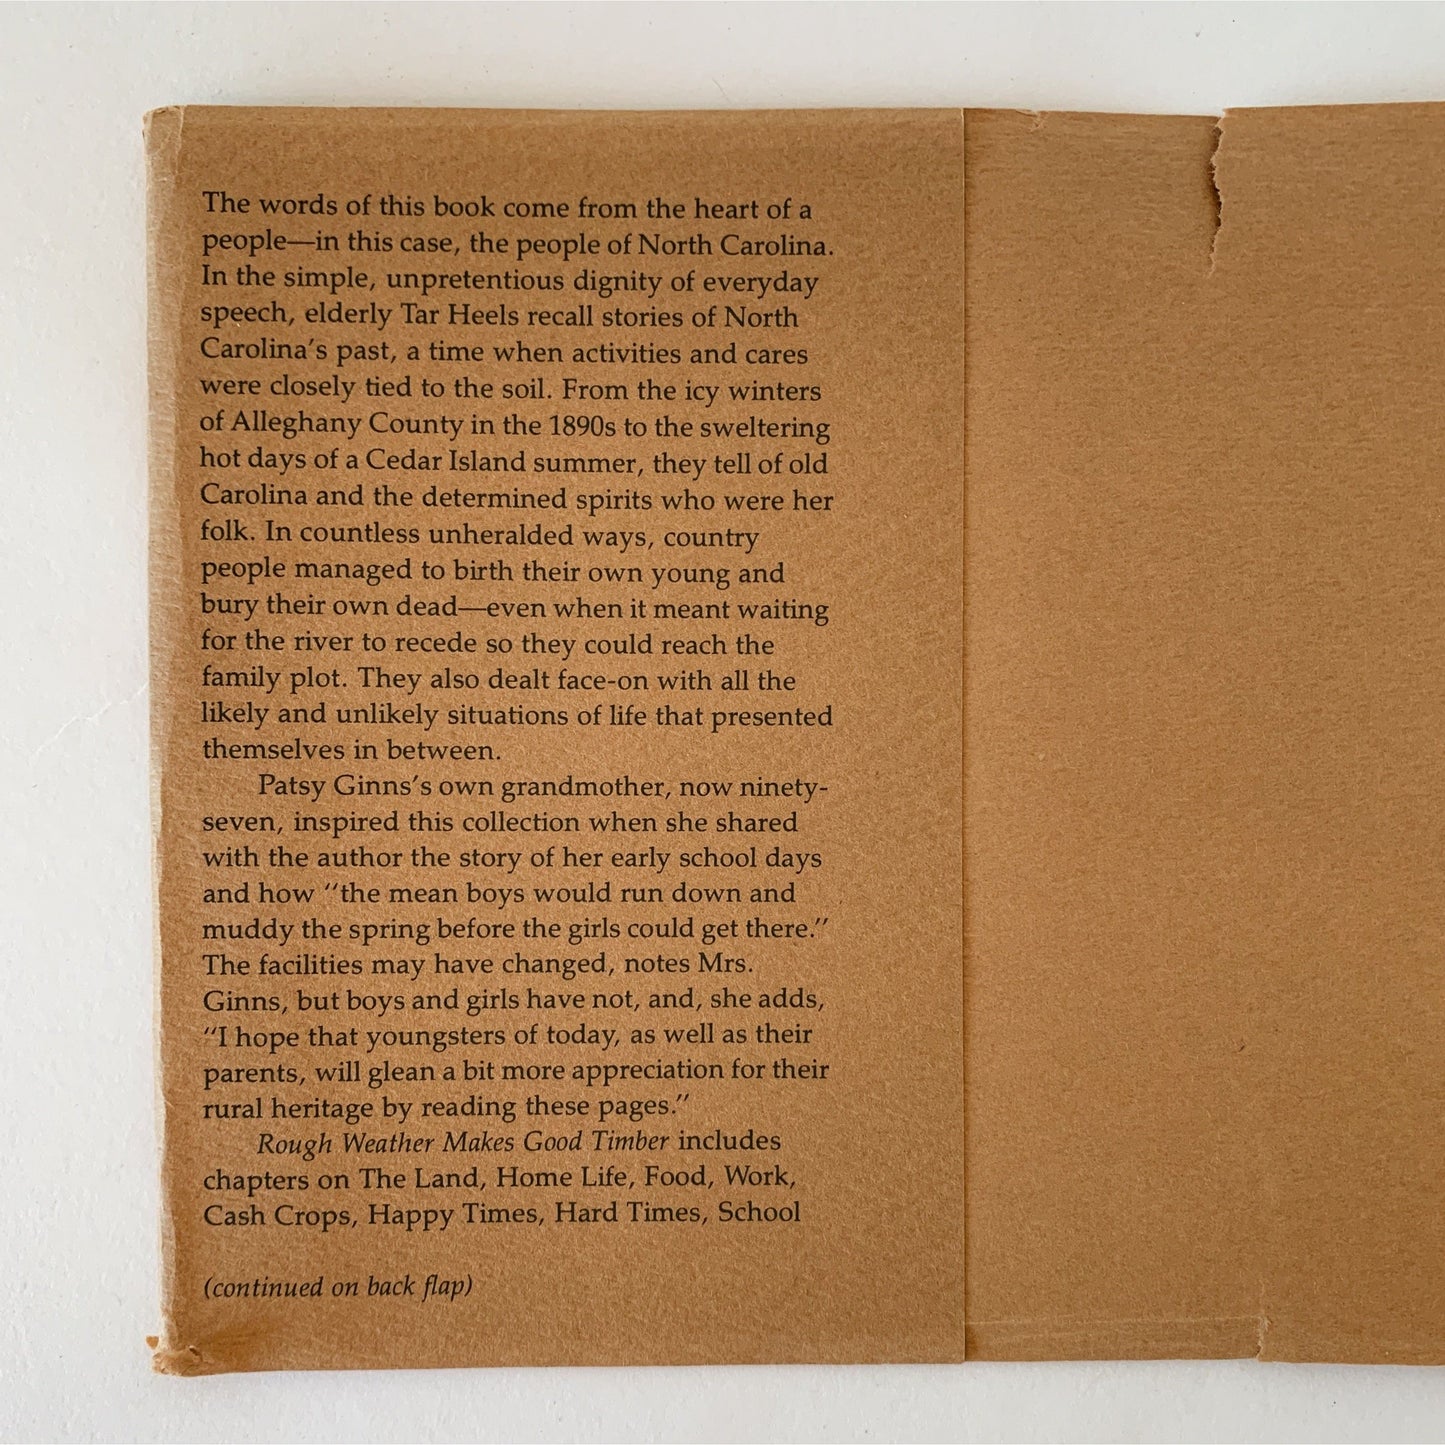 The words of this book come from the heart of a
people—in this case, the people of North Carolina.
In the simple, unpretentious dignity of everyday
speech, elderly Tar Heels recall stories of North
Carolina's past, a time when activities and cares
were closely tied to the soil. From the icy winters
of Alleghany County in the 1890s to the sweltering
hot days of a Cedar Island summer, they tell of old
Carolina and the determined spirits who were her
folk. In countless unheralded ways, country
people managed to birth their own young and
bury their own dead—even when it meant waiting
for the river to recede so they could reach the
family plot. They also dealt face-on with all the
likely and unlikely situations of life that presented
themselves in between.
Patsy Ginns's own grandmother, now ninety-
seven, inspired this collection when she shared
with the author the story of her early school days
and how "the mean boys would run down and
muddy the spring before the girls could get there."
The facilities may have changed, notes Mrs.
Ginns, but boys and girls have not, and, she adds,
"I hope that youngsters of today, as well as their
parents, will glean a bit more appreciation for their
rural heritage by reading these pages."
Rough Weather Makes Good Timber includes
chapters on The Land, Home Life, Food, Work,
Cash Crops, Happy Times, Hard Times, School
(continued on back flap)